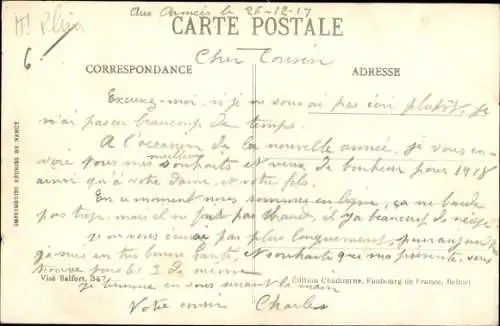 Aux Armées le 26-12-17
CARTE POSTALE
6
Cher Cousin
CORRESPONDANCE
ADRESSE
Excusez-moi, si je ne vous ai pas écri plutôt, je
n'ai pas eu beaucoup de temps.
A l'occasion de la nouvelle année, je vous en-
voie tous mes meilleurs souhaits et vœux de bonheur pour 1918
ainsi qu'à votre dame, et votre fils.
En ce moment nous sommes en ligne, ça ne barde
pas trop, mais il ne fait pas chaud, il y a beaucoup de neige
Je vous pas plus longuement, pour aujourd'hui
je suis en très bonne santé, et souhaite que ma présente, vous
trouve tous les 3 de même
Visé Belfort, 347
Édition Chadourne, Faubourg de France, Belfort
Je termine en vous serrant la main
Votre cousin Charles
IMPRIMERIES RÉUNIES DE NANCY